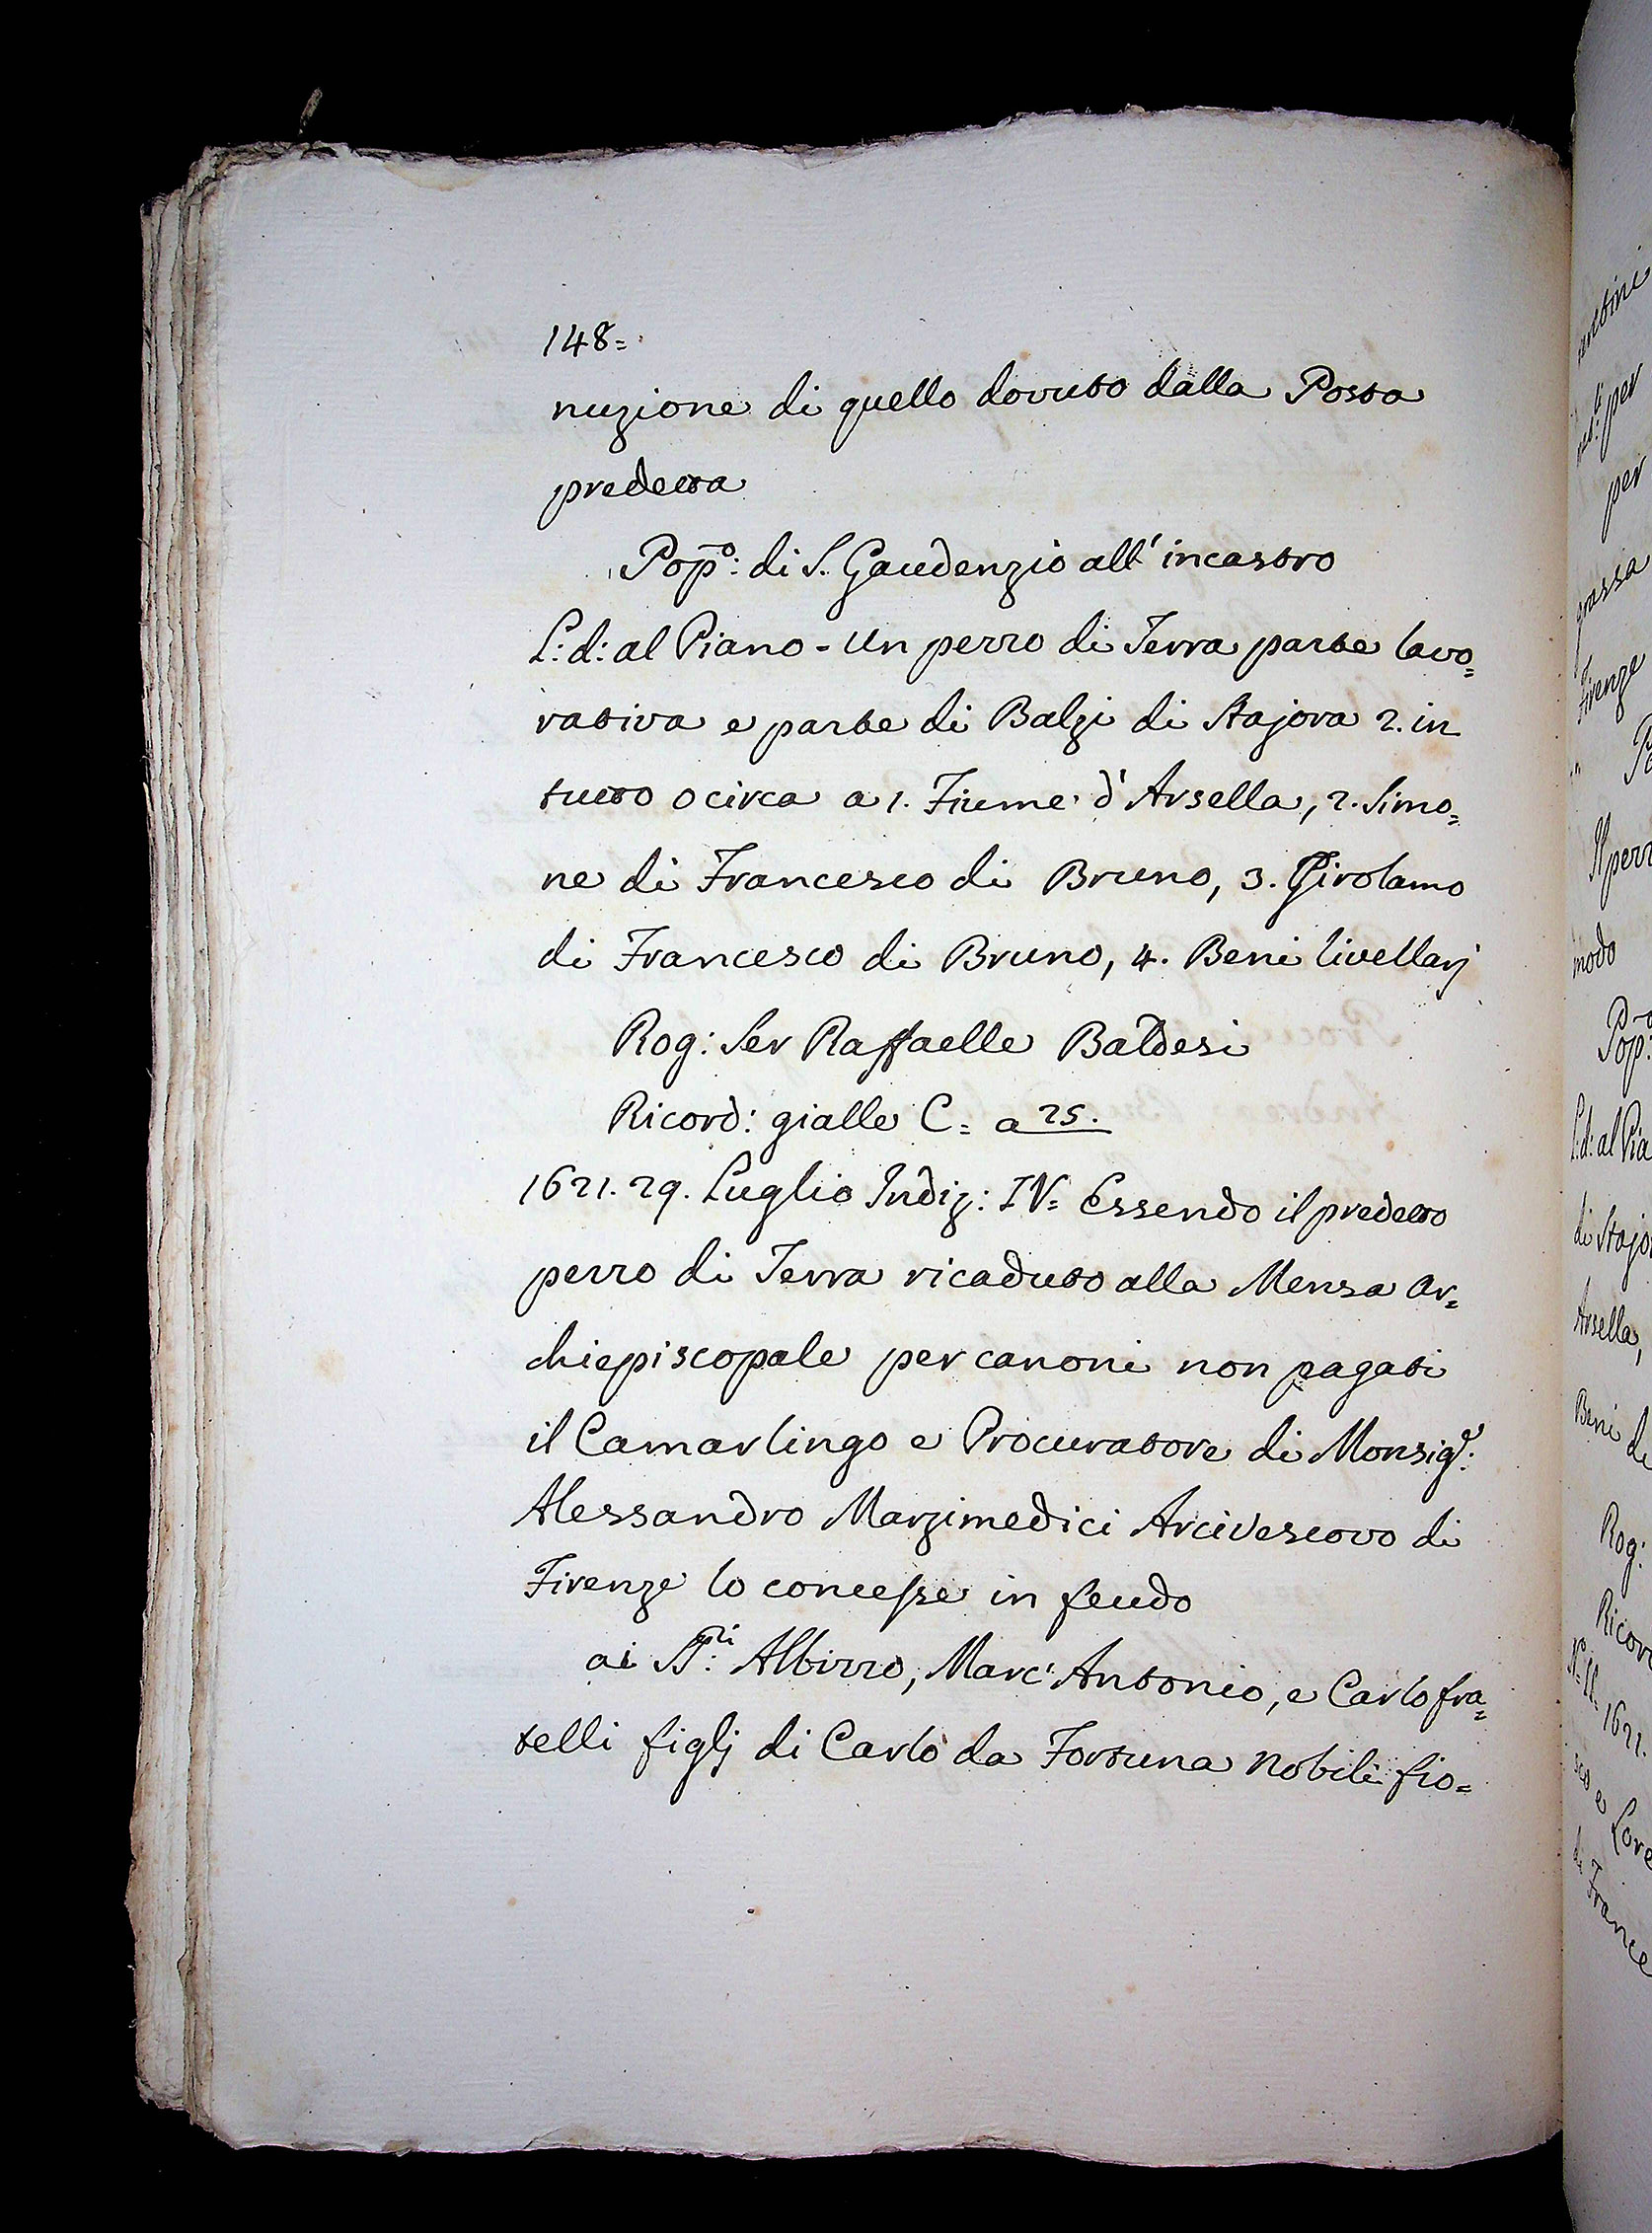 148=
nuzione di quello dovuto dalla Posta
predetta
Popō: di S. Gaudenzio all' incastro
L: d: al Piano - Un pezzo di Terra parte lavo=
rativa e parte di Balzi di Stajora 2. in
tutto o circa a 1. Fiume d'Arsella, 2. Simo=
ne di Francesco di Bruno, 3. Girolamo
di Francesco di Bruno, 4. Beni livellarj
Rog: Ser Raffaelle Baldesi
Ricord: gialle C= a 25.
1621. 29. Luglio Indiz: IV= Essendo il predetto
pezzo di Terra ricaduto alla Mensa Ar=
chiepiscopale per canoni non pagati
il Camarlingo e Procuratore di Monsigr:
Alessandro Marzimedici Arcivescovo di
Firenze lo concesse in feudo
ai Sri: Albizzo, Marc'Antonio, e Carlo fra=
telli figlj di Carlo da Fortuna Nobili fio=
per
per
Firenze
modo
Pop:
L: d: al Pia
di Stajo
Arsella,
Beni di
Rog:
Ricor
1621.
sco e Lore
di France